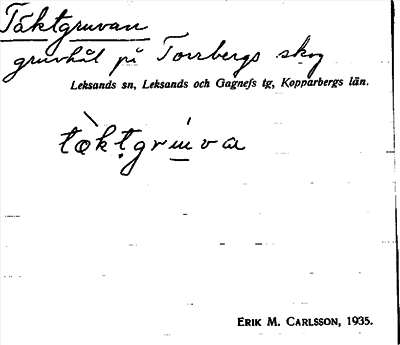 Täktgruvan
gruvhål på Torrbergs skog
Leksands sn, Leksands och Gagnefs tg, Kopparbergs län.
tæ̀kṭgrúva
ERIK M. CARLSSON, 1935.